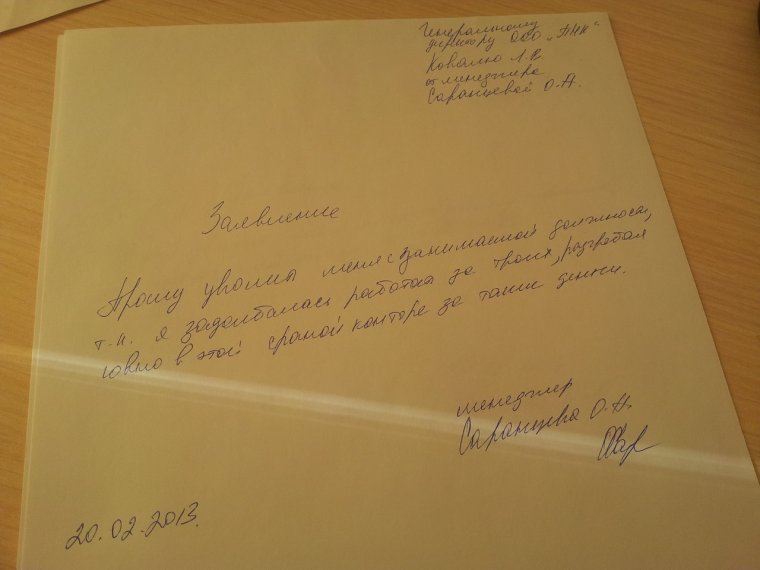 Генеральному
директору ООО „ПМК“
Ковалю Л.В.
от менеджера
Саранцевой О.А.
Заявление
Прошу уволить меня с занимаемой должности,
т.к. я задолбалась работать за троих, разгребая
говно в этой сраной конторе за такие деньги.
менеджер
Саранцева О.А.
Сар
20.02.2013.